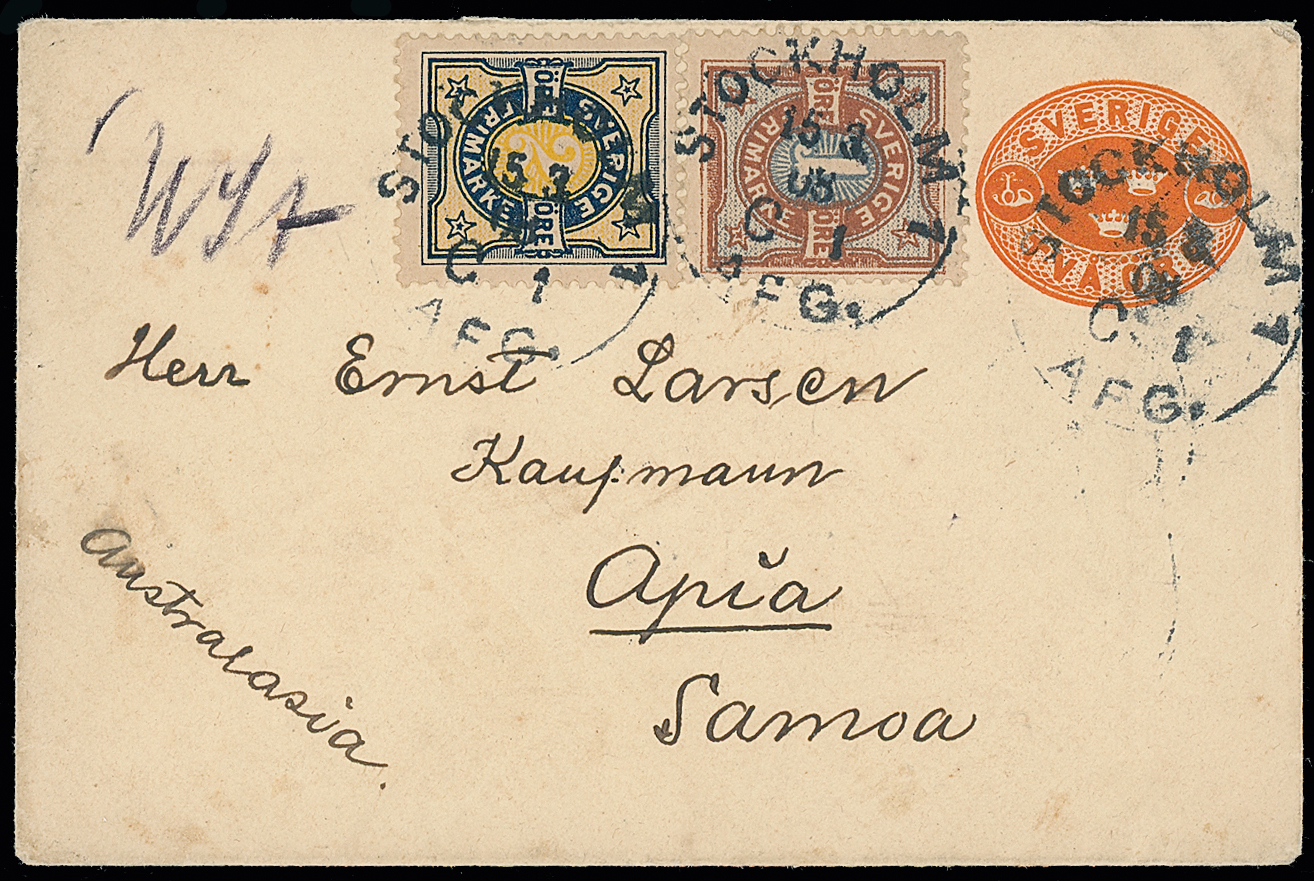 STOCKHOLM 1
15 3
C 1
AFG.
SVERIGE
2
ÖRE
FRIMÄRKE
ÖRE
STOCKHOLM 1
15 3
08
C 1
AFG.
SVERIGE
1
ÖRE
FRIMÄRKE
ÖRE
SVERIGE
TVÅ ÖRE
STOCKHOLM 1
15 3
08
C 1
AFG.
Herr Ernst Larsen
Kaufmann
Apia
Samoa
Australasia.